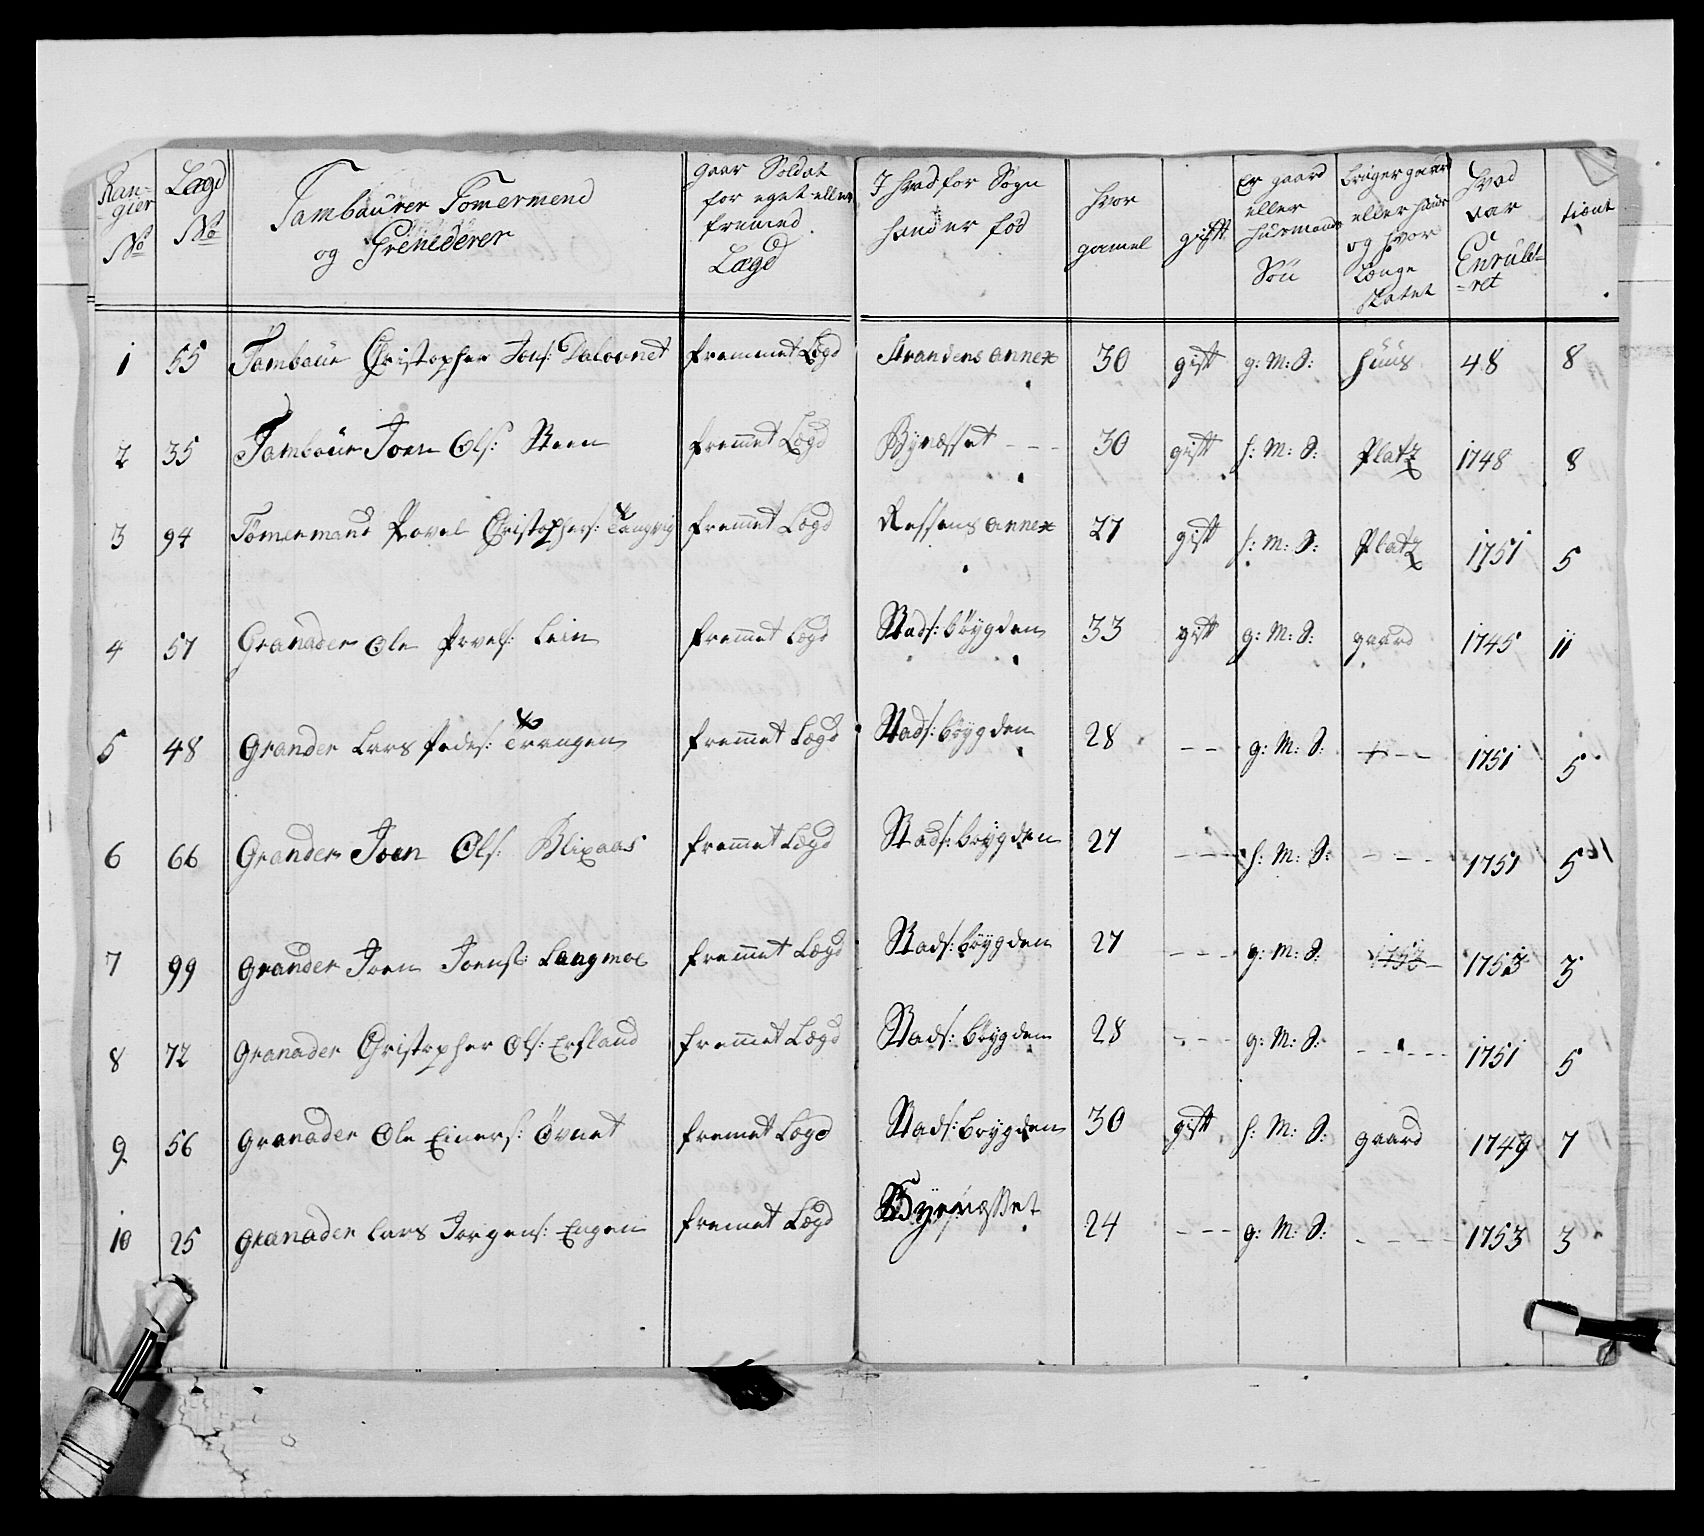 Ran-
gier
No
Lægd
No
Tambaurer Tömermend
og Grenederer
gaar Soldat
for eget eller
fremed
Lægd
I hvad for Sogn
hand er föd
hvor
gamel
gift
Er gaard
eller
huusmands
Sön
bruger gaard
eller huus
og hvor
Længe
hvad
aar
Enrull-
=ret
tient
1 55 Tambaur Christopher Jons: fremmet Lægd Strandens annex 30 gift g: M: S: huus 48 8
2 35 Tambour Joen Ols: Steen fremet Lægd Bynæsset - - 30 gift h: M: S: Platz 1748 8
3 94 Tömermand Povel Christophers: fremet Lægd Ressens annex 27 gift h: M: S: Platz 1751 5
4 57 Granader Ole Povels: Lein fremet Lægd Stads: böygden 33 gift g: M: S: gaard 1745 11
5 48 Grander Lars Peders: Trangen fremet Lægd Stads: böygden 28 - - g: M: S: - - 1751 5
6 66 Grander Joen Ols: Blixaas fremet Lægd Stads: böygden 27 - - - h: M: S: - - - 1751 5
7 99 Grander Joen Joens: Langmoe fremet Lægd Stads: böygden 27 - - - g: M: S: 1753 3
8 72 Granader Christopher Ols: Erfland fremet Lægd Stads: böygden 28 - - - g: M: S: - - - - 1751 5
9 56 Granader Ole Einers: Övnet fremet Lægd Stads: böygden 30 gift h: M: S: gaard 1749 7
10 25 Granader Lars Jorgens: Engen fremet Lægd Bynæsset 24 - - - g: M: S: - - - - 1753 3